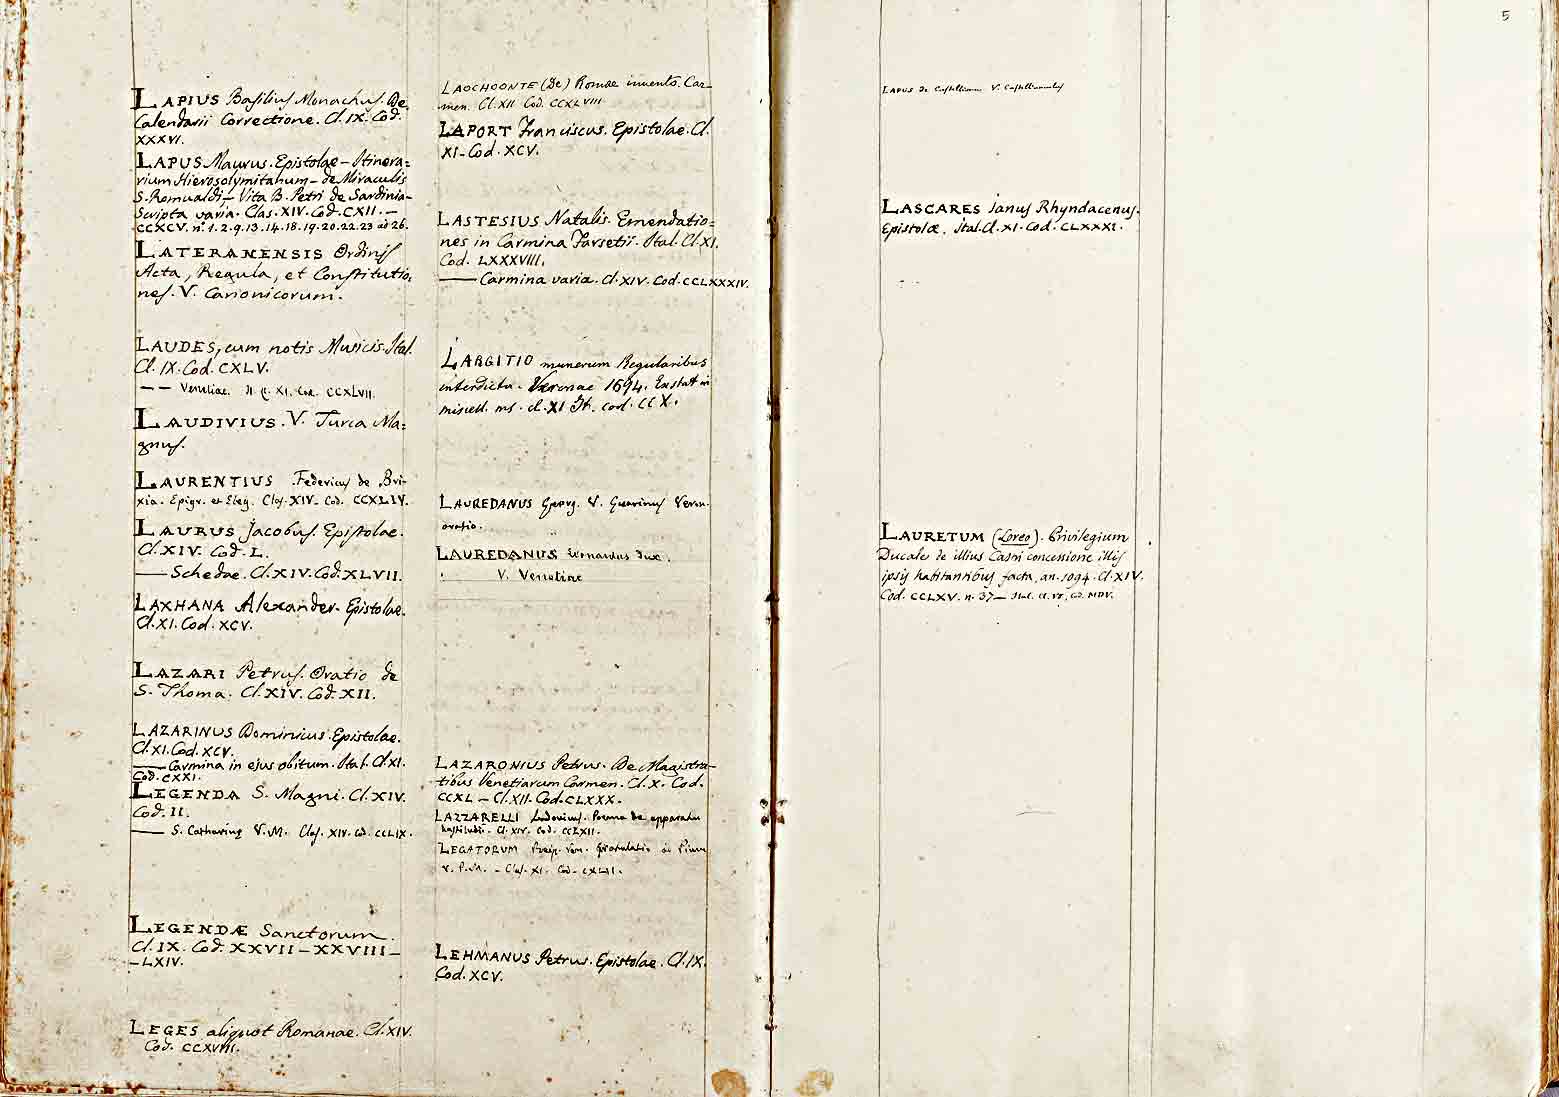 5
LAPIUS Basilius Monachus. De
Calendarii Correctione. Cl. IX. Cod.
XXXVI.
LAPUS Maurus. Epistolae – Itinera=
rium Hierosolymitanum – de Miraculis
S. Romualdi – Vita B. Petri de Sardinia –
Scripta varia. Clas. XIV. Cod. CXII. –
CCXCV. n. 1. 2. 9. 13. 14. 18. 19. 20. 22. 23 ad 26.
LATERANENSIS Ordinis
Acta, Regula, et Constitutio=
nes. V. Canonicorum.
LAUDES, cum notis Musicis. Ital.
Cl. IX. Cod. CXLV.
— — Venetiae. It. Cl. XI. Cod. CCXLVII.
LAUDIVIUS. V. Turca Ma=
gnus.
LAURENTIUS Federicus de Bri-
xia. Epigr. et Eleg. Clas. XIV. Cod. CCXLIV.
LAURUS Jacobus. Epistolae.
Cl. XIV. Cod. L.
—— Schedae. Cl. XIV. Cod. XLVII.
LAXHANA Alexander. Epistolae.
Cl. XI. Cod. XCV.
LAZARI Petrus. Oratio de
S. Thoma. Cl. XIV. Cod. XII.
LAZARINUS Dominicus. Epistolae.
Cl. XI. Cod. XCV.
—— Carmina in ejus obitum. Ital. Cl. XI.
Cod. CXXI.
LEGENDA S. Magni. Cl. XIV.
Cod. II.
—— S. Catharinę V. M. Clas. XIV. Cod. CCLIX.
LEGENDÆ Sanctorum.
Cl. IX. Cod. XXVII – XXVIII –
– LXIV.
LEGES aliquot Romanae. Cl. XIV.
Cod. CCXVIII.
LAOCHOONTE (De) Romae invento. Car-
men. Cl. XII. Cod. CCXLVIII.
LAPORT Franciscus. Epistolae. Cl.
XI. Cod. XCV.
LASTESIUS Natalis. Emendatio=
nes in Carmina Farsetii. Ital. Cl. XI.
Cod. LXXXVIII.
—— Carmina varia. Cl. XIV. Cod. CCLXXXIV.
LARGITIO munerum Regularibus
interdicta. Veronae 1694. Exstat in
miscell. ms. cl. XI It. cod. CCX.
LAUREDANUS Georg. V. Guarinus Veron.
oratio.
LAUREDANUS Leonardus dux.
V. Venetiae
LAZARONIUS Petrus. De Magistra-
tibus Venetiarum Carmen. Cl. X. Cod.
CCXL – Cl. XII. Cod. CLXXX.
LAZZARELLI Ludovicus. Poema de apparatu
hastiludii. Cl. XIV. Cod. CCLXII.
LEGATORUM Reip. Ven. Gratulatio ad Pium
V. P. M. – Clas. XI. Cod. CXLII.
LEHMANUS Petrus. Epistolae. Cl. IX.
Cod. XCV.
LAPUS de Castelliono V. Castelliunculus
LASCARES Janus Rhyndacenus.
Epistolæ. Ital. Cl. XI. Cod. CLXXXI.
LAURETUM (Loreo). Privilegium
Ducale de illius Castri concessione illis
ipsis habitantibus facta, an. 1094. Cl. XIV.
Cod. CCLXV. n. 37 – Ital. Cl. VII, Cod. MDV.